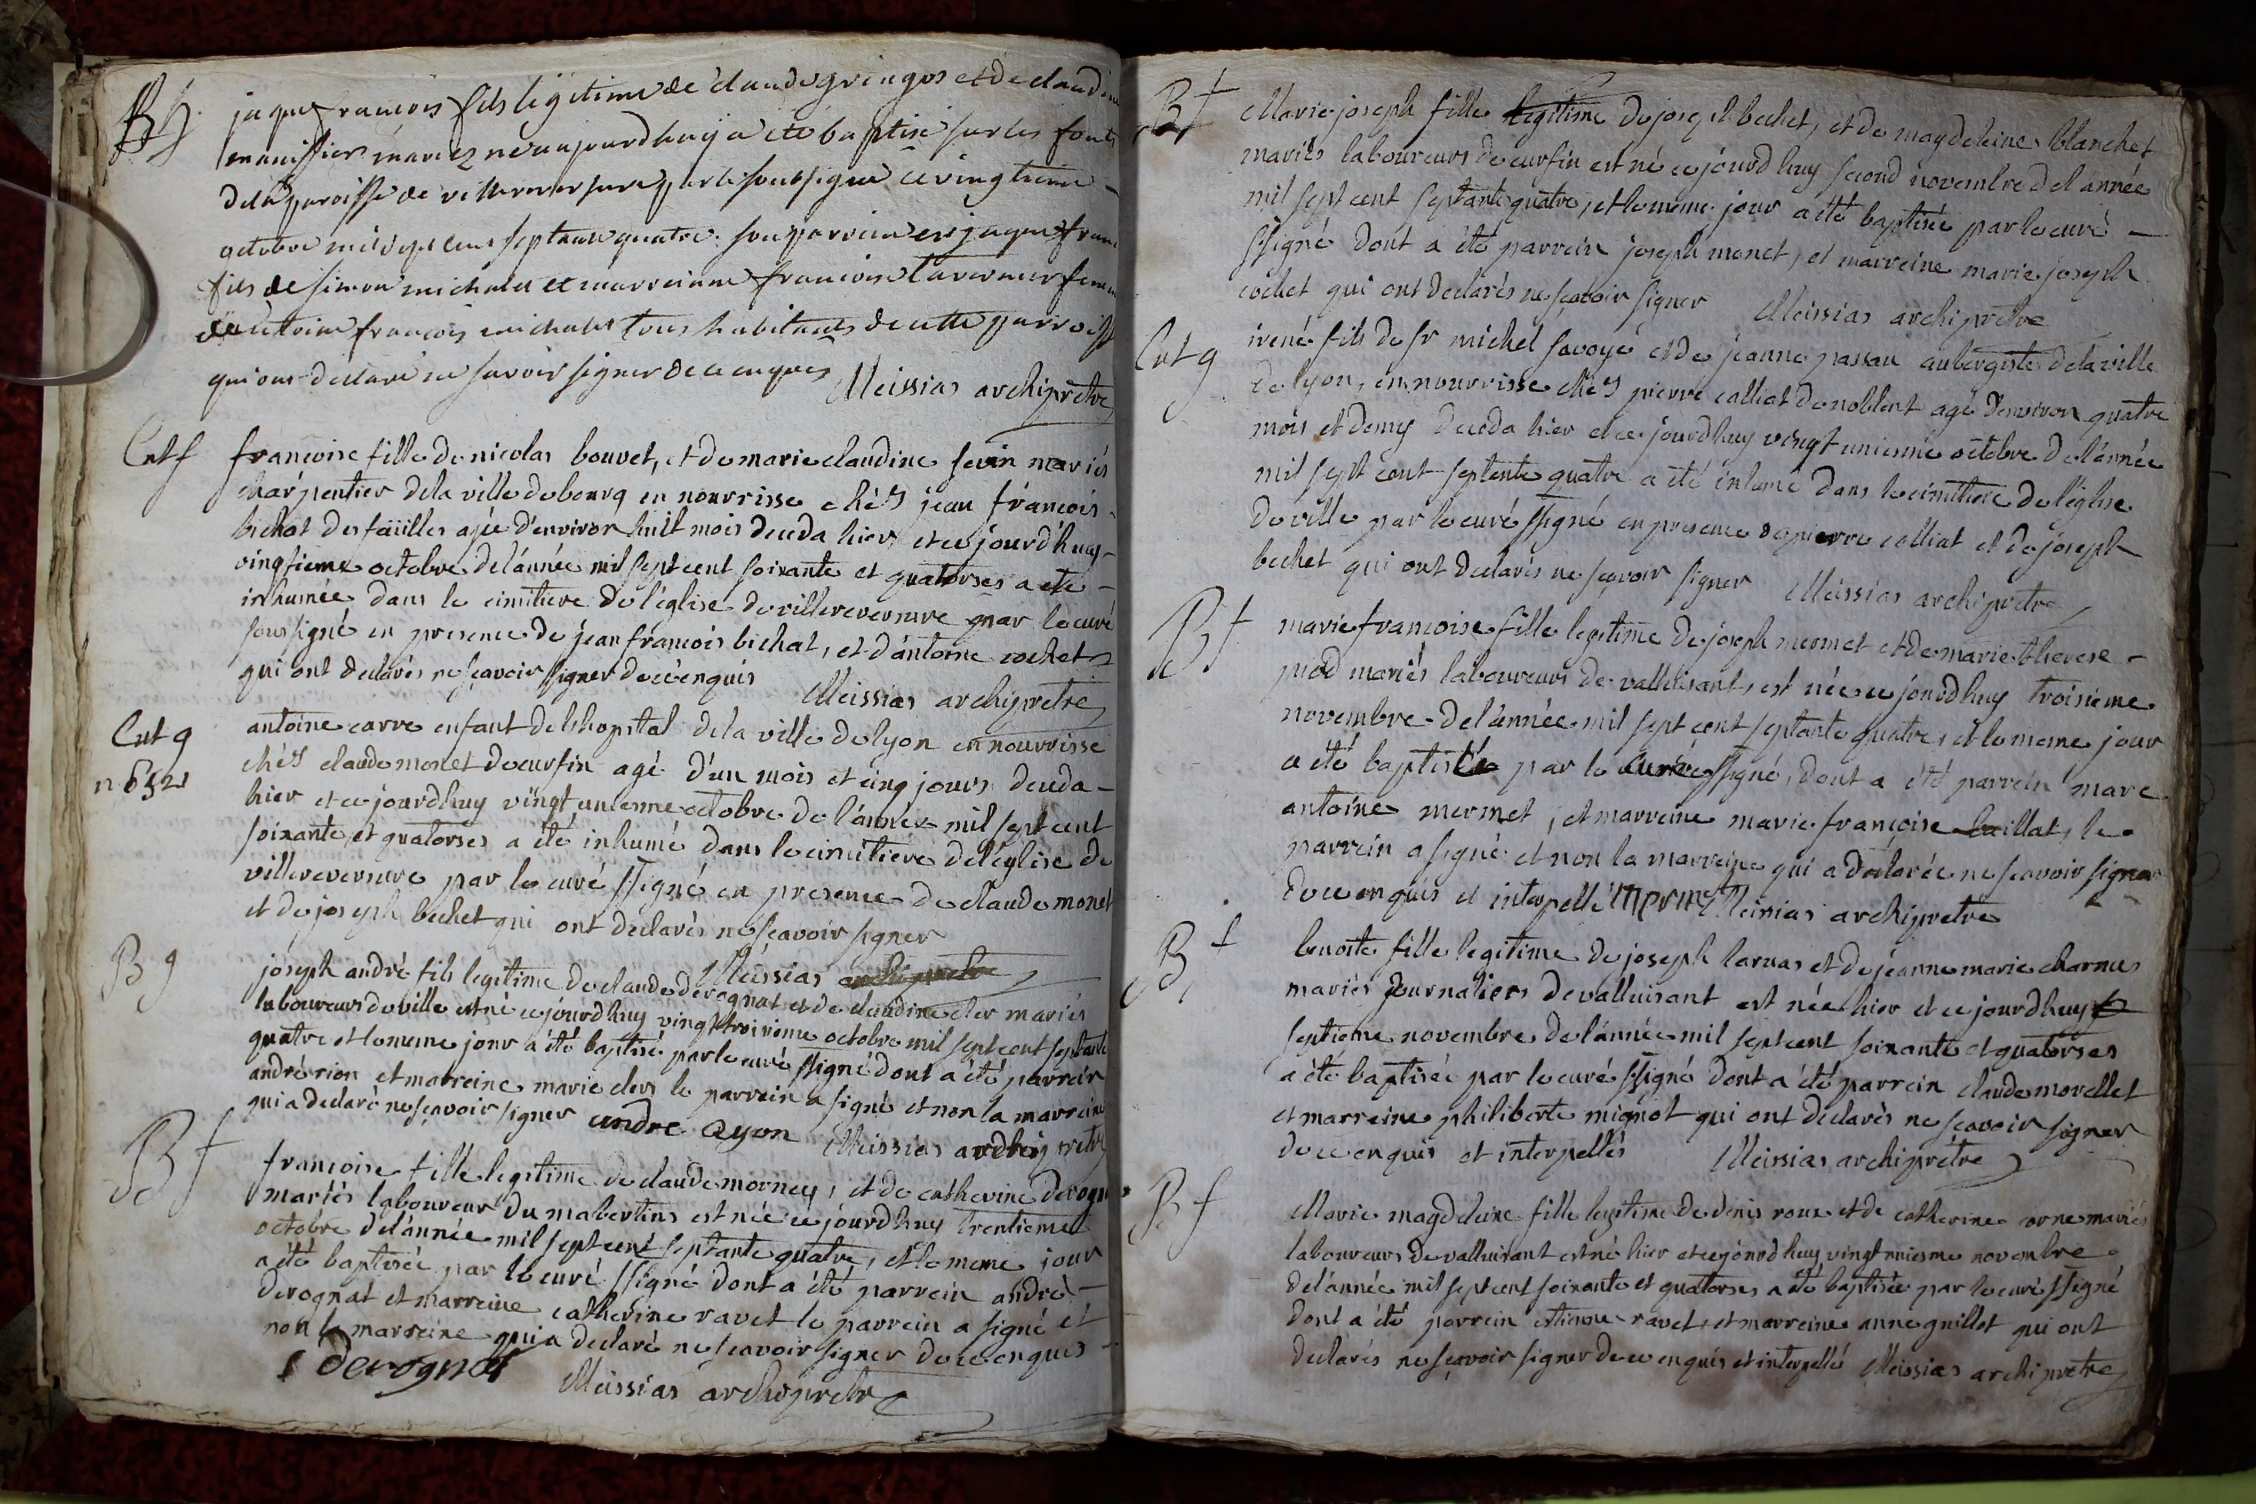 B g
jaque francois fils legitime de claude gringos et de claudine
manissier mariez né aujourdhuy a été baptisé sur les fonts
de la paroisse de villereversure par le soubsigné ce vingtieme
octobre mil sept cens septante quatre son parrain est jaque franc
fils de simon michalet et marreinne francoise tavernier femme
francois michalet tous habitants de cette parroisse
qui ont declaré ne savoir signer de ce enquis
Meissias archiprêtre
Ent f
francoise fille de nicolas bouvet, et de marie claudine sevin mariés
charpentier de la ville de bourg en nourrisse chés jean francois
bichat des feüilles agée d'environ huit mois deceda hier et ce jourd'huy
vingtieme octobre de l'année mil sept cent soixante et quatorses a été
inhumée dans le cimitiere de l'église de villereversure par le curé
soussigné en presence de jean francois bichat, et d'antoine cochet
qui ont declarés ne sçavoir signer de ce enquis
Meissias archiprêtre
Ent g
n 652
antoine carre enfant de lhopital de la ville de lyon en nourrisse
chés claude monet de curfin agé d'un mois et cinq jours deceda
hier et ce jourdhuy vingt unieme octobre de l'année mil sept cent
soixante et quatorses a été inhumé dans le cimitiere de l'église de
villereversure par le curé ssigné en presence de claude monet
et de joseph bechet qui ont déclarés ne sçavoir signer
Meissias archiprêtre
B g
joseph andré fils legitime de claude derognat et de claudine cler mariés
laboureurs de ville est né ce jourdhuy vingt troisieme octobre mil sept cent septante
quatre et le meme jour a été baptisé par le curé ssigné dont a été parrein
andré rion et marreine marie clers le parrein a signé et non la marreine
qui a declaré ne sçavoir signer andre ayon Meissias archiprêtre
B f
francoise fille legitime de claude morney, et de catherine derognat
mariés laboureur du mabertins est née ce jourdhuy trentieme
octobre de l'année mil sept cent septante quatre, et le meme jour
a été baptisée par le curé ssigné dont a été parrein andré
derognat et marreine catherine ravet le parrein a signé et
non la marreine qui a declaré ne sçavoir signer de ce enquis
derognat
Meissias archiprêtre
B f
Marie joseph fille legitime de joseph bechet, et de magdeleine blanchet
mariés laboureurs de curfin est né ce jourdhuy second novembre de l'année
mil sept cent septante quatre, et le meme jour a été baptisée par le curé
ssigné dont a été parrein joseph monet, et marreine marie joseph
cochet qui ont declarés ne sçavoir signer Meissias archiprêtre
Ent g
irené fils de sr michel savoyé et de jeanne passau aubergiste de la ville
de lyon, en nourrisse chés pierre colliat de noblent agé d'environ quatre
mois et demy deceda hier et ce jourdhuy vingt unieme octobre de l'année
mil sept cent septente quatre a été inhumé dans le cimitiere de l'église
de ville par le curé ssigné en presence de pierre colliat et de joseph
bechet qui ont declarés ne sçavoir signer Meissias archiprêtre
B f
marie francoise fille legitime de joseph mermet et de marie therese
piod mariés laboureurs de valluisant, est née ce jourdhuy troisieme
novembre de l'année mil sept cent septante quatre, et le meme jour
a été baptisée par le curé ssigné, dont a été parrein marc
antoine mermet, et marreine marie françoise baillat, le
parrein a signé et non la marreine qui a declarée ne sçavoir signer
de ce enquis et interpellé Mermet Meissias archiprêtre
B f
benoite fille legitime de joseph laruas et de jeanne marie charnus
mariés journaliers de valluisant est née hier et ce jourdhuy
septieme novembre de l'année mil sept cent soixante et quatorses
a été baptisée par le curé ssigné dont a été parrein claude morellet
et marreine philiberte mignot qui ont déclarés ne sçavoir signer
de ce enquis et interpellés Meissias archiprêtre
B f
Marie magdeleine fille legitime de denis roux et de catherine orne mariés
laboureurs de valluisant est né hier et ce jourdhuy vingt unieme novembre
de l'année mil sept cent soixante et quatorses a été baptisée par le curé ssigné
dont a été parrein estienne ravet, et marreine anne guillot qui ont
declarés ne sçavoir signer de ce enquis et interpellé Meissias archiprêtre